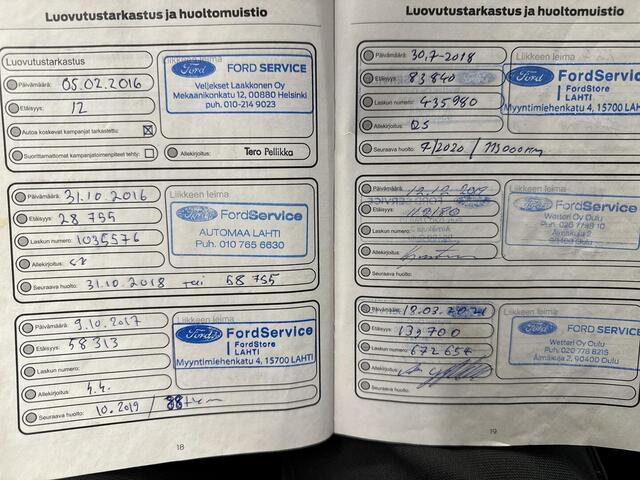 Luovutustarkastus ja huoltomuistio
Luovutustarkastus
Päivämäärä: 05.02.2016
Etäisyys: 12
Autoa koskevat kampanjat tarkastettu:
Suorittamattomat kampanjatoimenpiteet tehty:
Liikkeen leima
Ford FORD SERVICE
Veljekset Laakkonen Oy
Mekaanikonkatu 12, 00880 Helsinki
puh. 010-214 9023
Allekirjoitus: Tero Pellikka
Päivämäärä: 31.10.2016
Etäisyys: 28 755
Laskun numero: 1035576
Allekirjoitus:
Seuraava huolto: 31.10.2018 tai 58 755
Liikkeen leima
Ford FordService
AUTOMAA LAHTI
Puh. 010 765 6630
Päivämäärä: 9.10.2017
Etäisyys: 58313
Laskun numero:
Allekirjoitus:
Seuraava huolto: 10.2019 /
Liikkeen leima
Ford FordService
FordStore
LAHTI
Myyntimiehenkatu 4, 15700 LAHTI
18
Luovutustarkastus ja huoltomuistio
Päivämäärä: 30.7-2018
Etäisyys: 83840
Laskun numero: 435980
Allekirjoitus:
Seuraava huolto: 7/2020 / 113000km
Liikkeen leima
Ford FordService
FordStore
LAHTI
Myyntimiehenkatu 4, 15700 LAHTI
Päivämäärä: 12.12.2019
Etäisyys: 112180
Laskun numero:
Allekirjoitus:
Seuraava huolto:
Liikkeen leima
Ford FordService
Wetteri Oy Oulu
Äimäkuja 2
90400 Oulu
Päivämäärä: 12.03.2021
Etäisyys: 139700
Laskun numero: 672654
Allekirjoitus:
Seuraava huolto:
Liikkeen leima
Ford FORD SERVICE
Wetteri Oy Oulu
Puh. 020 778 8215
Äimäkuja 2, 90400 Oulu
19